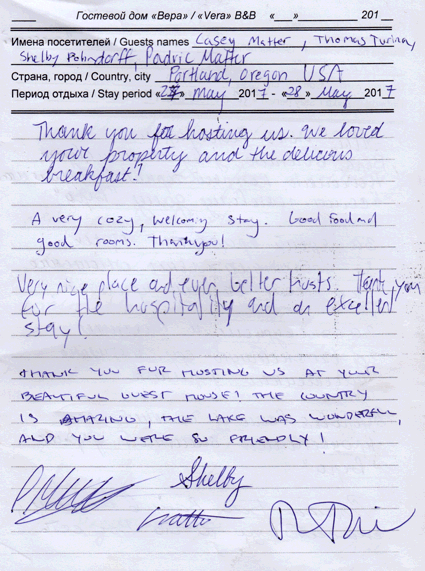 Гостевой дом «Вера» / «Vera» B&B «___» ____________ 201__
Имена посетителей / Guests names Casey Matter, Thomas
Shelby Padric Matter
Страна, город / Country, city Portland, Oregon USA
Период отдыха / Stay period «27» May 2017 - «28» May 2017
Thank you for hosting us. We loved
your property and the delicious
breakfast!
A very cozy, welcoming stay. Good food and
good rooms. Thank you!
Very nice place and even better hosts. Thank you
for the hospitality and an excellent
stay!
THANK YOU FOR HOSTING US AT YOUR
BEAUTIFUL GUEST HOUSE! THE COUNTRY
IS AMAZING, THE LAKE WAS WONDERFUL,
AND YOU WERE SO FRIENDLY!
Shelby